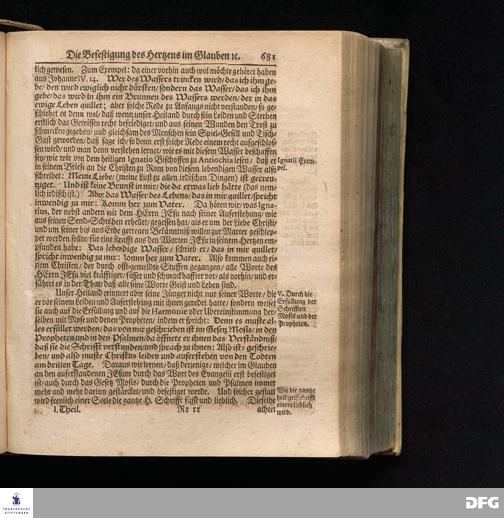 Die Befestigung des Hertzens im Glauben ꝛc. 681
lich gewesen. Zum Exempel: da einer vorhin auch wol möchte gehöret haben
aus Johanne IV. 14. Wer des Wassers trincken wird/ das ich ihm ge-
be/ den wird ewiglich nicht dürsten/ sondern das Wasser/ das ich ihm
gebe/ das wird in ihm ein Brunnen des Wassers werden/ der in das
ewige Leben quillet; aber solche Rede zu Anfangs nicht verstanden/ so ge-
schiehet es denn wol/ daß wenn unser Heiland durch sein Leiden und Sterben
erstlich das Gewissen recht befriediget/ und aus seinen Wunden den Trost zu
schmecken gegeben/ und gleichsam des Menschen sein Spiel-Gesell und Tisch-
Gast geworden/ daß sage ich/ so denn erst solche Rede einem recht aufgeschlos-
sen wird/ und man denn verstehen lernet/ wie es mit diesem Wasser beschaffen
sey/ wie wir von dem heiligen Ignatio Bischoffen zu Antiochia lesen/ daß er
in seinem Briefe an die Christen zu Rom von diesem lebendigen Wasser also
schreibet: Meine Liebe/ (meine Lust zu allen irdischen Dingen) ist gecreu-
tziget. Und ist keine Brunst in mir/ die da etwas lieb hätte (das nem-
lich irdisch ist.) Aber das Wasser des Lebens/ das in mir quillet/ spricht
inwendig zu mir: Komm her zum Vater. Da hören wir/ was Igna-
tius, der nebst andern mit dem HErrn JEsu nach seiner Auferstehung/ wie
aus seinen Send-Schreiben erhellet/ gegessen hat/ als er um der Liebe Christi/
und um seiner bis ans Ende getreuen Bekäntniß willen zur Marter geschlep-
pet werden sollte/ für eine Krafft aus den Worten JEsu in seinem Hertzen em-
pfunden habe: Das lebendige Wasser/ schrieb er/ das in mir quillet/
spricht inwendig zu mir: komm her zum Vater. Also kommen auch ei-
nem Christen/ der durch offt-gemeldte Stuffen gegangen/ alle Worte des
HErrn JEsu viel kräfftiger/ süsser und schmackhaffter vor/ als vorhin/ und er-
fähret es in der That/ daß alle seine Worte Geist und Leben sind.
Ignatii Exem-
pel.
Unser Heiland erinnert aber seine Jünger nicht nur seiner Worte/ die
er vor seinem Leiden und Auferstehung mit ihnen geredet hatte/ sondern weiset
sie auch auf die Erfüllung und auf die Harmonie oder Ubereinstimmung der-
selben mit Mose und denen Propheten/ indem er spricht: Denn es muste al-
les erfüllet werden/ das von mir geschrieben ist im Gesetz Mosis/ in den
Propheten und in den Psalmen/ da öffnete er ihnen das Verständniß/
daß sie die Schrifft verstunden/ und sprach zu ihnen: Also ist's geschrie-
ben/ und also muste Christus leiden und auferstehen von den Todten
am dritten Tage. Daraus wir lernen/ daß derjenige/ welcher im Glauben
an den auferstandenen JEsum durch das Wort des Evangelii erst befestiget
ist/ auch durch das Gesetz Mosis/ durch die Propheten und Psalmen immer
mehr und mehr darinn gestärcket/ und befestiget werde. Und solcher gestalt
wird freylich einer Seele die gantze H. Schrifft süsse und lieblich. Dieselbe
V. Durch die
Erfüllung der
Schrifften
Mosis und der
Propheten.
Wie die gantze
heilige Schrifft
einem lieblich
wird.
I. Theil. Rr rr achtet
FRANCKESCHE
STIFTUNGEN
DFG